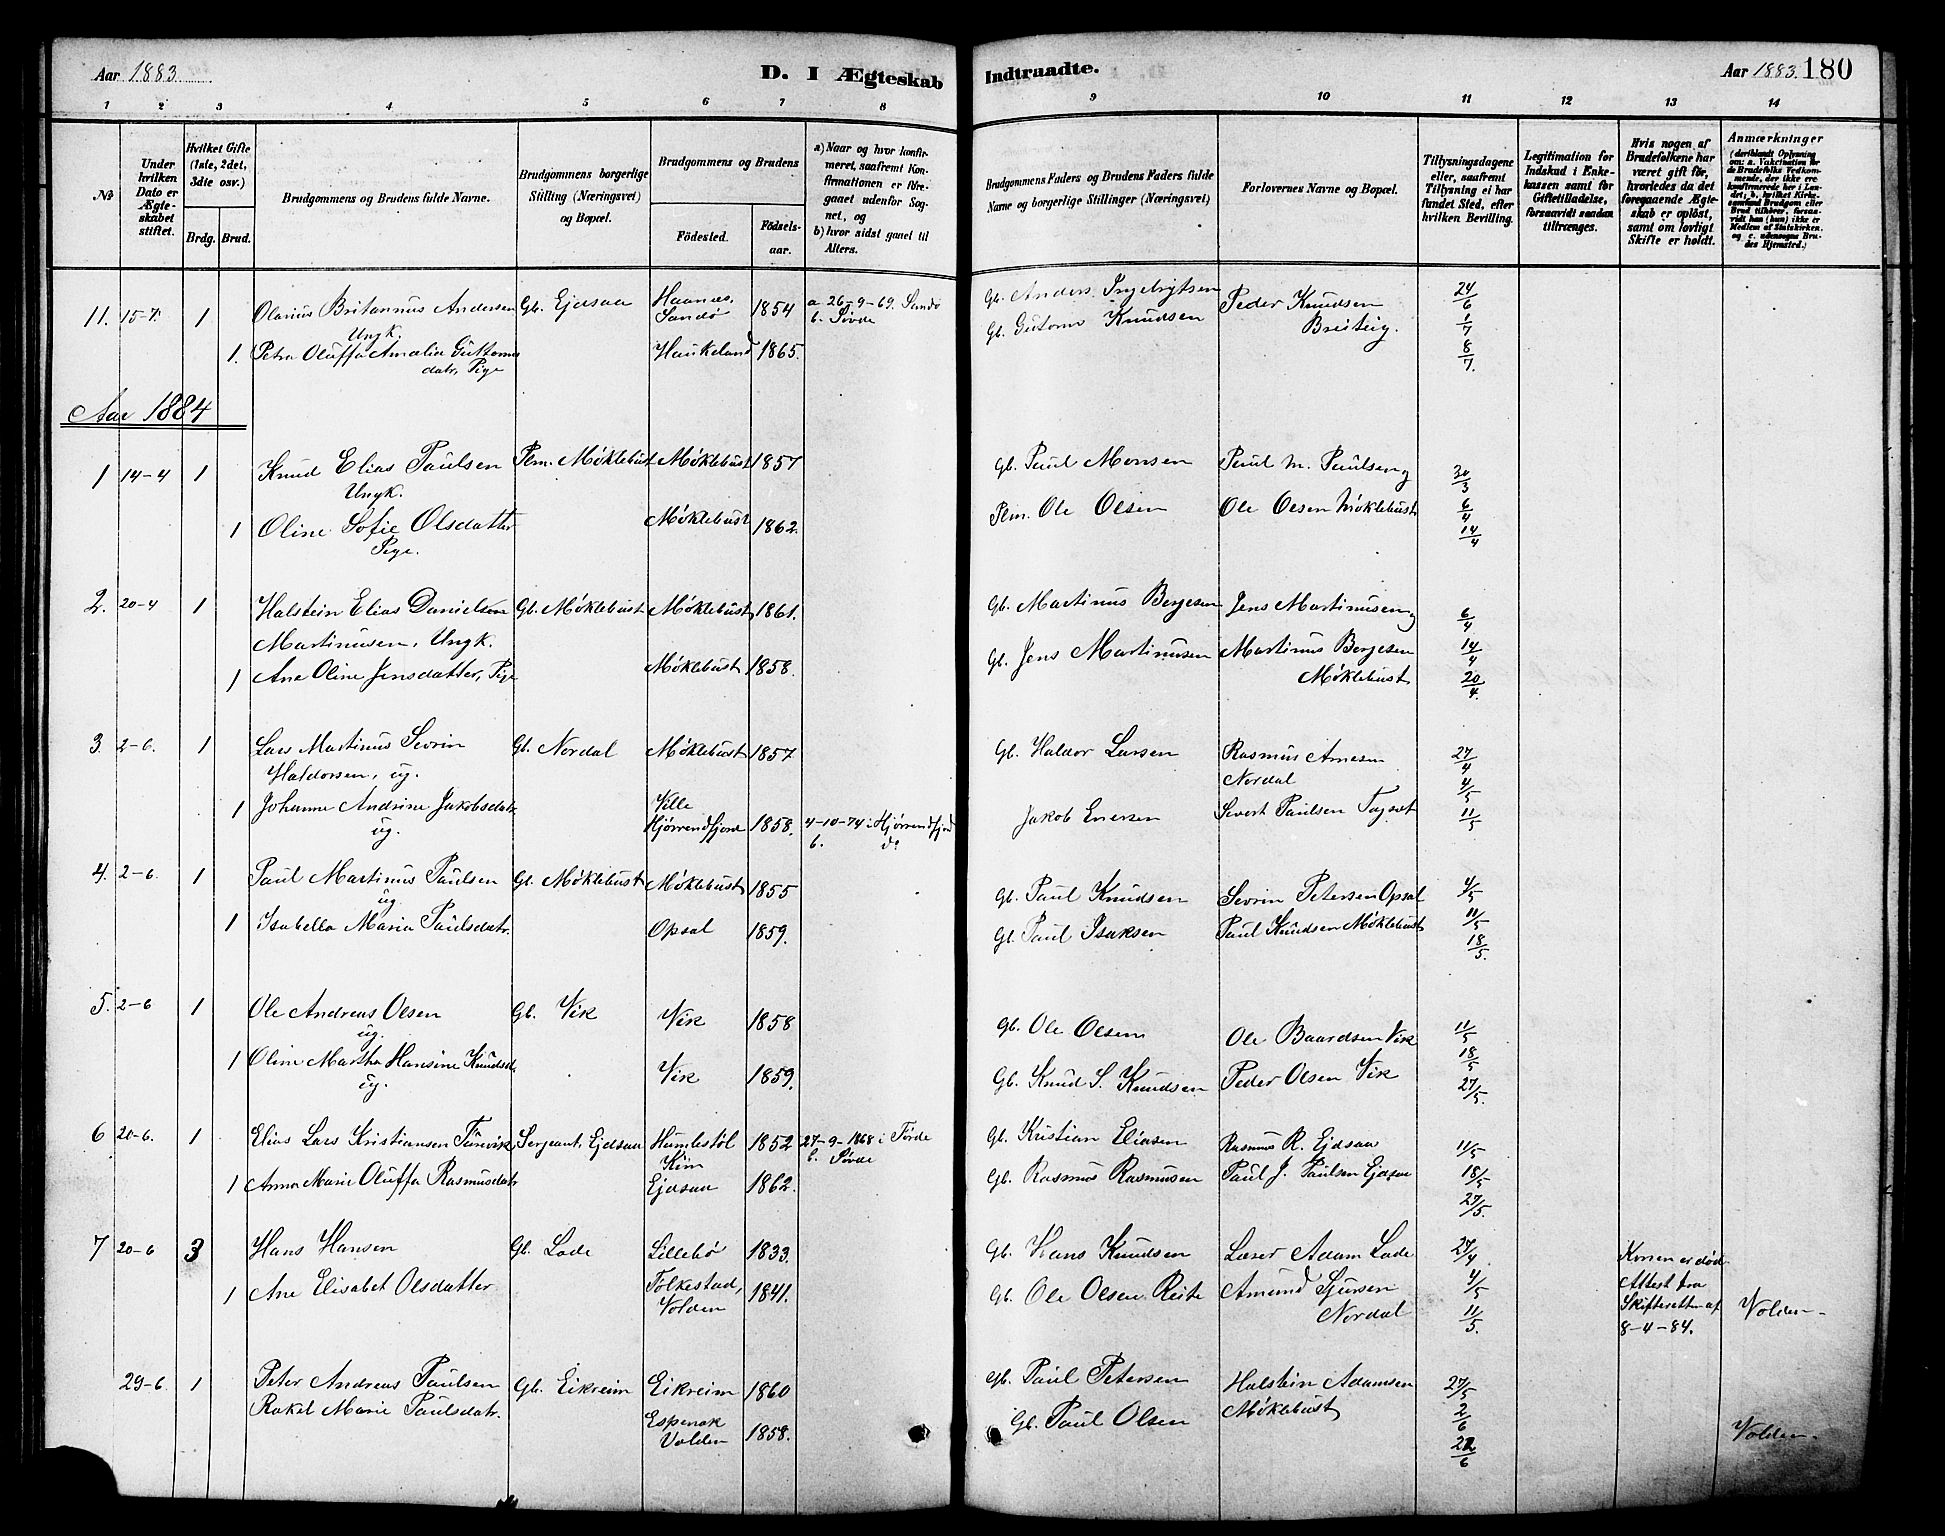 Aar 1883.
D. I Ægteskab
Indtraadte.
Aar 1883. 180
1 2 3 4 5 6 7 8 9 10 11 12 13 14
No.
Under hvilken Dato er Ægteskabet stiftet.
Hvilket Gifte (1ste, 2det, 3die osv.)
Brdg. Brud.
Brudgommens og Brudens fulde Navne.
Brudgommens borgerlige Stilling (Næringsvei) og Bopæl.
Brudgommens og Brudens
Fødested.
Fødselsaar.
a) Naar og hvor konfirmeret, saafremt Konfirmationen er foregaaet udenfor Sognet, og
b) hvor sidst gaaet til Alters.
Brudgommens Faders og Brudens Faders fulde Navne og borgerlige Stillinger (Næringsvei)
Forlovernes Navne og Bopæl.
Tillysningsdagene eller, saafremt Tillysning ei har fundet Sted, efter hvilken Bevilling.
Legitimation for Indskud i Enkekassen samt for Giftetilladelse, forsaavidt saadan tiltrænges.
Hvis nogen af Brudefolkene har været gift før, hvorledes da det foregaaende Ægteskab er opløst, samt om lovligt Skifte er holdt.
Anmærkninger (deriblandt Oplysning om: a. Vakcination for de Brudefolks Vedkommende, der ikke ere konfirmerede her i Landet, b. hvilket Kirkesamfund Brudgom eller Brud tilhører, forsaavidt han (hun) ikke er Medlem af Statskirken, og c. udensogns Brudes Hjemsted.)
11. 15-7. 1 Olarius Britannus Andersen Gb. Ejdsaa Haanæs, Sandø 1854 a 26-9-69. Sandø Gb. Anders Ingebrigtsen Peder Knudsen 24/6
Ungk. b. Søvde Gb. Gutorm Knudsen Breiteig. 1/7
1. Petra Oluffa Amalia Guttormsdatr, Pige Haukeland 1865. 8/7.
Aar 1884
1 14-4 1 Knud Elias Paulsen Plm. Møklebust Møklebust 1857 Gb. Paul Monsen Paul M. Paulsen og 30/3
Ungk. 6/4
1 Oline Sofie Olsdatter Møklebust 1862. Plm. Ole Olsen Ole Olsen Møklebust 14/4
Pige.
2. 20-4 1 Halstein Elias Danielsen Gb. Møklebust Møklebust 1861. Gb. Martinus Bergesen Jens Martinusen og 6/4
Martinusen, Ungk. 14/4
1 Ane Oline Jensdatter, Pige Møklebust 1858. Gb. Jens Martinusen Martinus Bergesen Møklebust 20/4.
3. 2-6. 1 Lars Martinus Sevrin Gb. Nordal Møklebust 1857 Gb. Haldor Larsen Rasmus Arnesen 27/4
Haldorsen, ug. Nordal 4/5
1 Johanne Andrine Jakobsdatr, Hjørrendfjord 1858. 4-10-74 i Hjørrendfjord Jakob Sivert Paulsen 11/5
ug. b. do
4. 2-6. 1 Paul Martinus Paulsen Gb. Møklebust Møklebust 1855 Gb. Paul Knudsen Sevrin Petersen Opsal 4/5
ug. 11/5
1 Isabella Maria Paulsdatr. Opsal 1859. Gb. Paul Isaksen Paul Knudsen Møklebust 18/5.
5. 2-6 1 Ole Andreas Olsen Gb. Vik Vik 1858 Gb. Ole Olsen Ole Baardsen Vik 11/5
ug. 18/5
1 Oline Martha Hansine Knudsd. Vik 1859. Gb. Knud S. Knudsen Peder Olsen Vik 27/5.
ug.
6 20-6. 1 Elias Lars Kristiansen Sergeant, Ejdsaa Humlestøl Kim 1852 27-9-1868 i Førde Gb. Kristian Eliasen Rasmus R. Ejdsaa 11/5
b. Søvde
1 Anna Marie Oluffa Rasmusdatr Ejdsaa 1862. Gb. Rasmus Rasmusen Paul J. Paulsen Ejdsaa 18/5
27/5.
7 20-6 3 Hans Hansen Gb. Lade Lillebø 1833. Gb. Hans Knudsen Læser Adam Lade 27/4 Konen er død. Attest fra Skifteretten af 8-4-84.
1 Ane Elisabet Olsdatter Folkestad, Volden 1841. Gb. Ole Olsen Reite Amund Sjursen Nordal 4/5 Volden
11/5.
29-6. 1 Peter Andreas Paulsen Gb. Eikreim Eikreim 1860 Gb. Paul Petersen Halstein Adamsen 27/5
Rakel Marie Paulsdatr. Espenak Volden 1858. Gb. Paul Olsen Møklebust 2/6 Volden
22/6